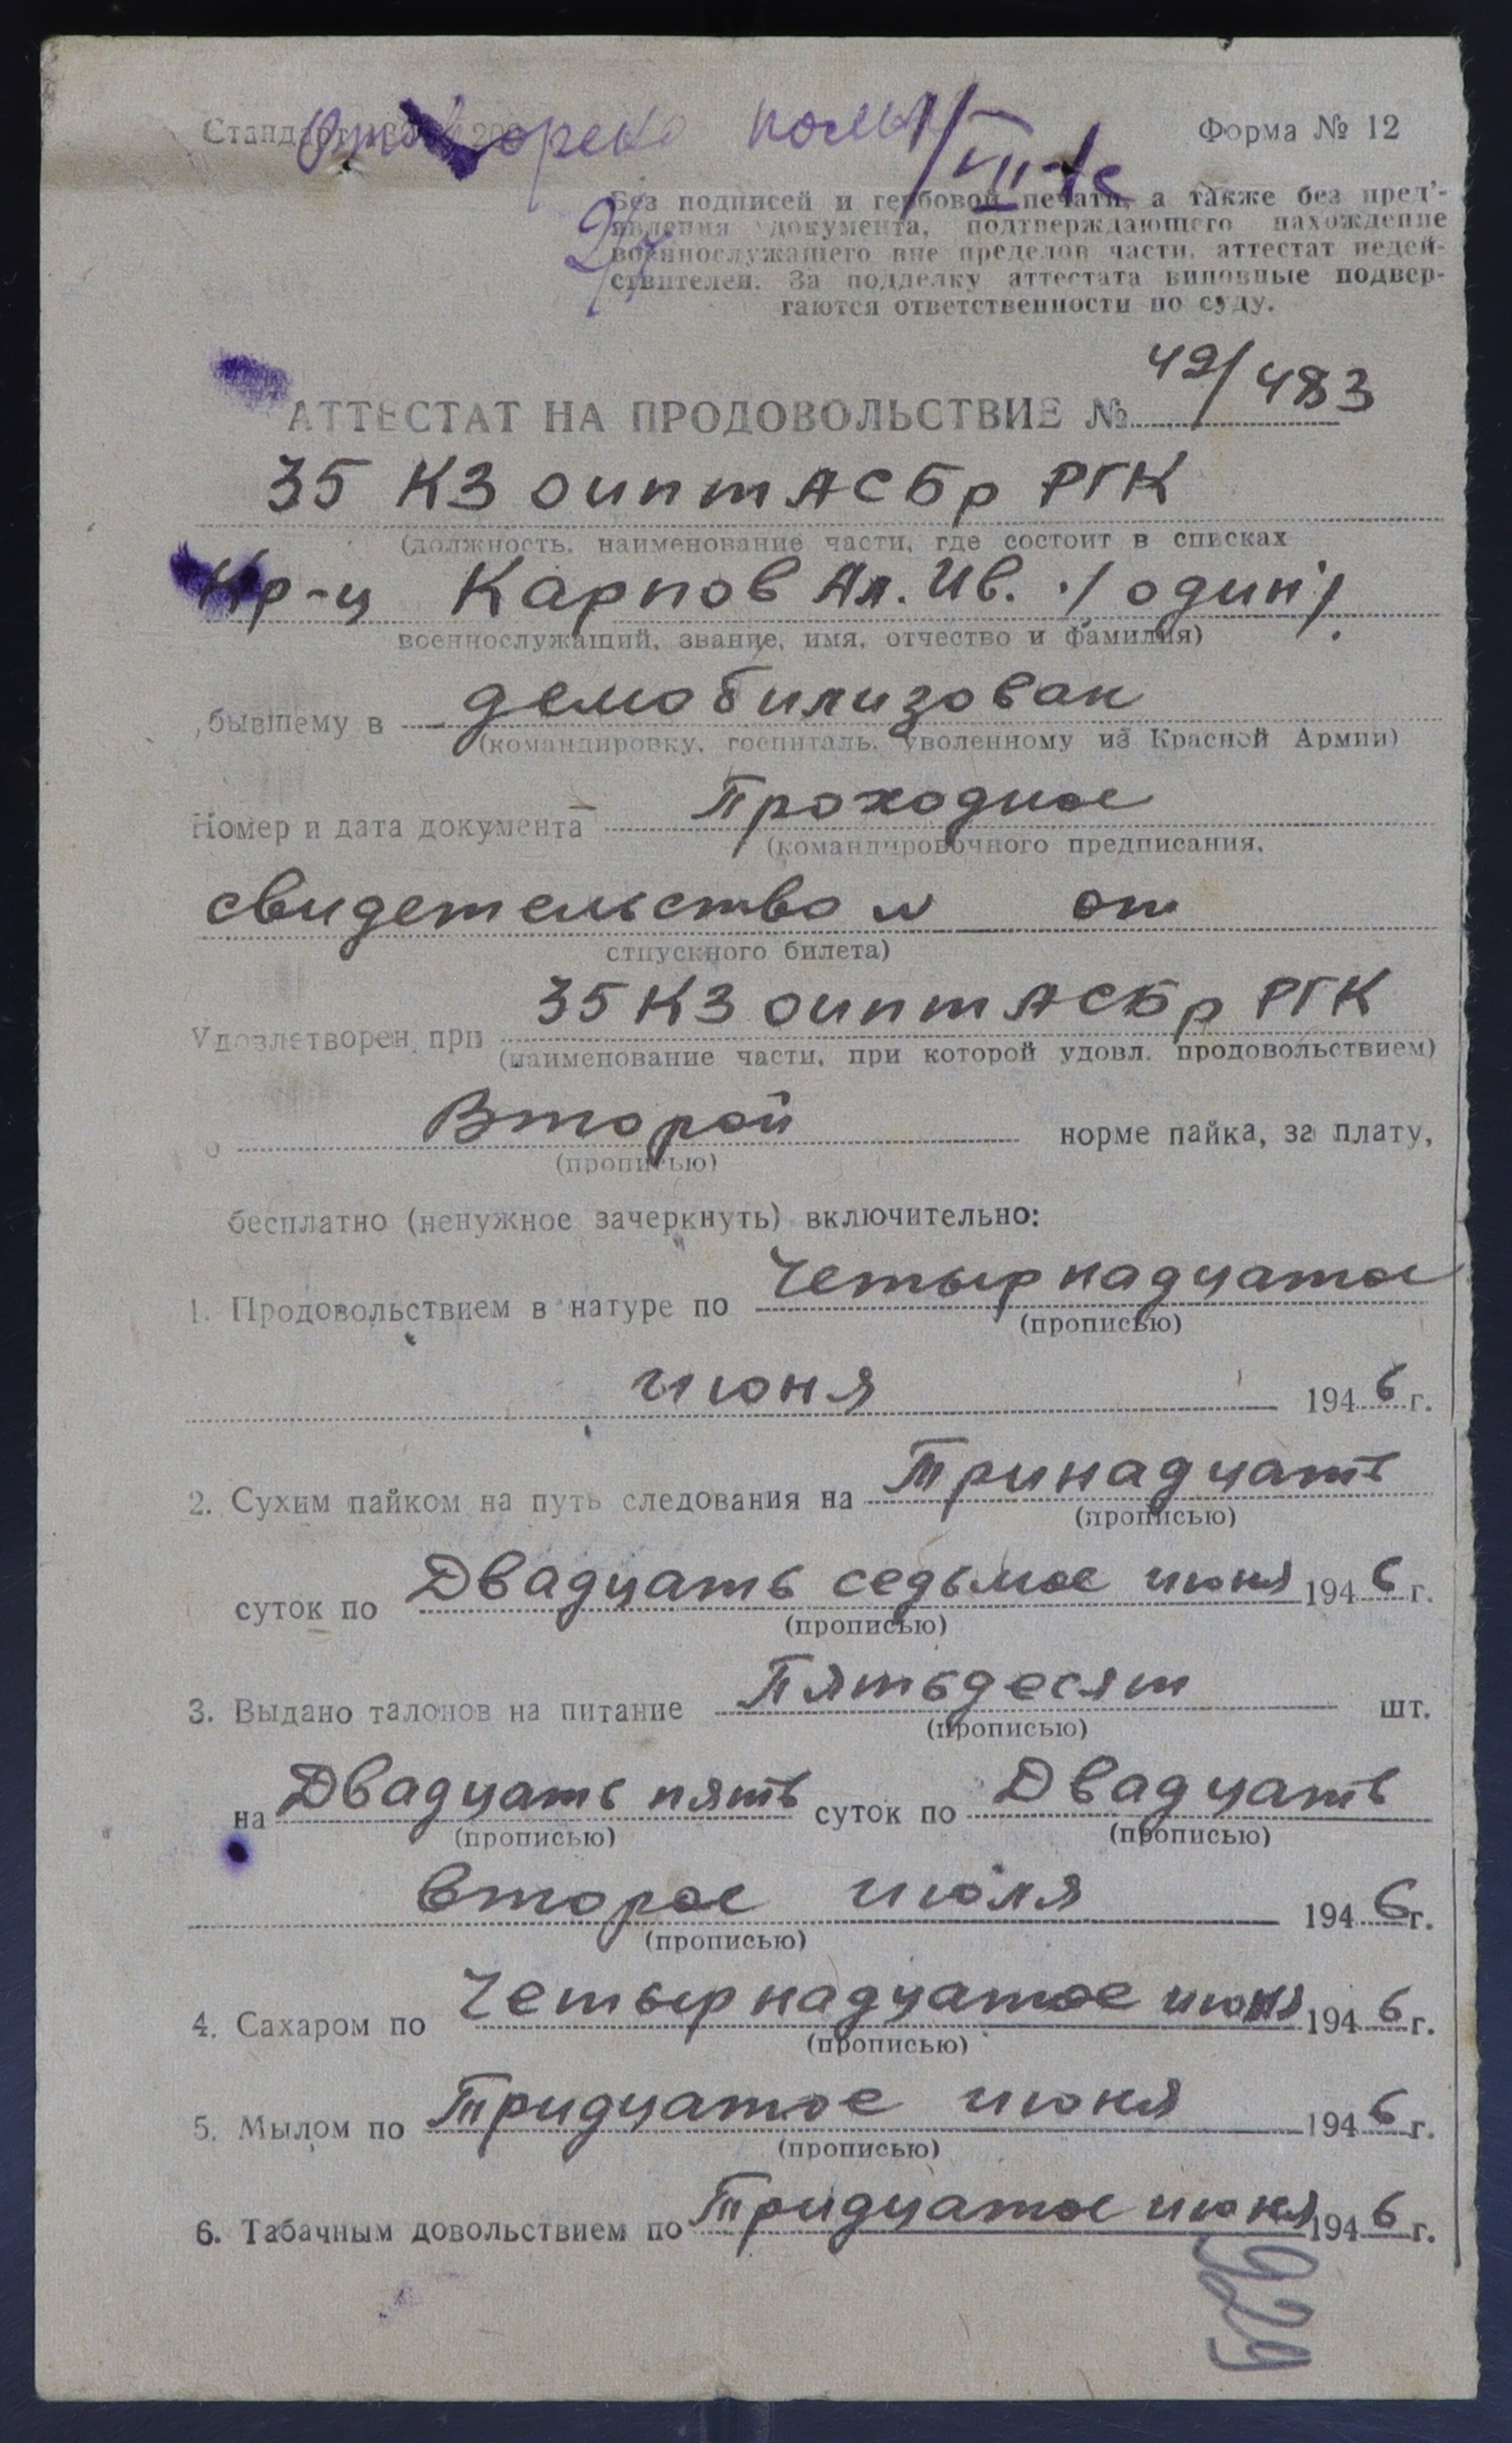 Стандарт
Форма № 12
Без подписей и гербовой печати, а также без пред'-
явления документа, подтверждающего нахождение
военнослужащего вне пределов части, аттестат недей-
ствителен. За подделку аттестата виновные подвер-
гаются ответственности по суду.
АТТЕСТАТ НА ПРОДОВОЛЬСТВИЕ № 49/483
35 КЗ ОИПТАСБр РГК
(должность, наименование части, где состоит в списках
Кр-ц Карпов Ал. Ив. /один/.
военнослужащий, звание, имя, отчество и фамилия)
бывшему в демобилизован
(командировку, госпиталь, уволенному из Красной Армии)
Номер и дата документа Проходное
(командировочного предписания,
свидетельство № от
отпускного билета)
Удовлетворен при 35 КЗ ОИПТАСБр РГК
(наименование части, при которой удовл. продовольствием)
о Второй норме пайка, за плату,
(прописью)
бесплатно (ненужное зачеркнуть) включительно:
1. Продовольствием в натуре по Четырнадцатое
(прописью)
июня 1946 г.
2. Сухим пайком на путь следования на Тринадцать
(прописью)
суток по Двадцать седьмое июня 1946 г.
(прописью)
3. Выдано талонов на питание Пятьдесят шт.
(прописью)
на Двадцать пять суток по Двадцать
(прописью) (прописью)
второе июля 1946 г.
(прописью)
4. Сахаром по Четырнадцатое июня 1946 г.
(прописью)
5. Мылом по Тридцатое июня 1946 г.
(прописью)
6. Табачным довольствием по Тридцатое июня 1946 г.
929